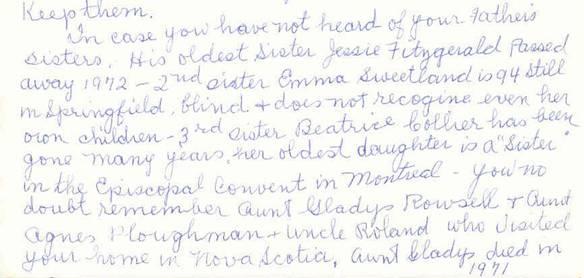 Keep them.
In case you have not heard of your Fathers
sisters. His oldest Sister Jessie Fitzgerald Passed
away 1972 - 2nd sister Emma Sweetland is 94 still
in Springfield, blind + does not recogine even her
own children - 3rd sister Beatrice Collier has been
gone many years, her oldest daughter is a "Sister"
in the Episcopal Convent in Montreal - you no
doubt remember Aunt Gladys Rowsell + Aunt
Agnes Ploughman + Uncle Roland who visited
your home in Nova Scotia, Aunt Gladys died in
1971